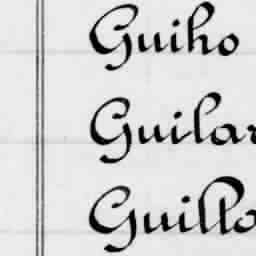 Guiho
Guilar
Guillo